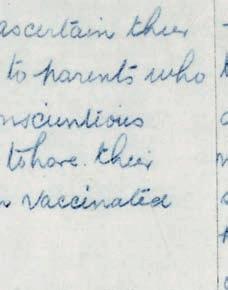 ascertain their
to parents who
nscientious
to have their
n vaccinated